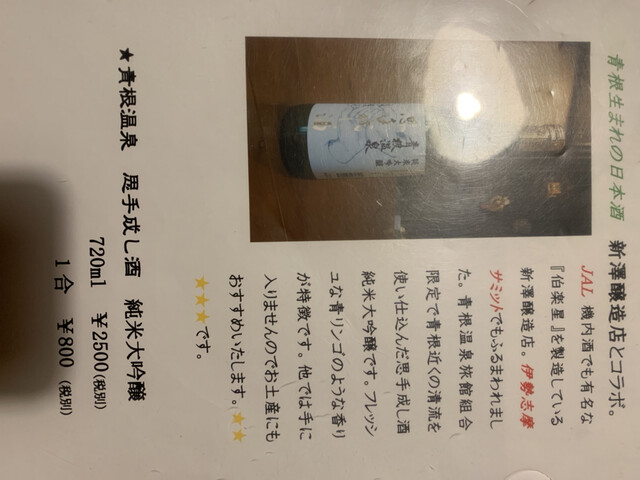 青根生まれの日本酒 新澤醸造店とコラボ。
JAL 機内酒でも有名な
『伯楽星』を製造している
新澤醸造店。伊勢志摩
サミットでもふるまわれまし
た。青根温泉旅館組合
限定で青根近くの清流を
使い仕込んだ思手成し酒
純米大吟醸です。フレッシ
ュな青リンゴのような香り
が特徴です。他では手に
入りませんのでお土産にも
おすすめいたします。★★
★★★です。
青根温泉
純米大吟醸
★青根温泉 思手成し酒 純米大吟醸
720ml ￥2500(税別)
1合 ￥800(税別)